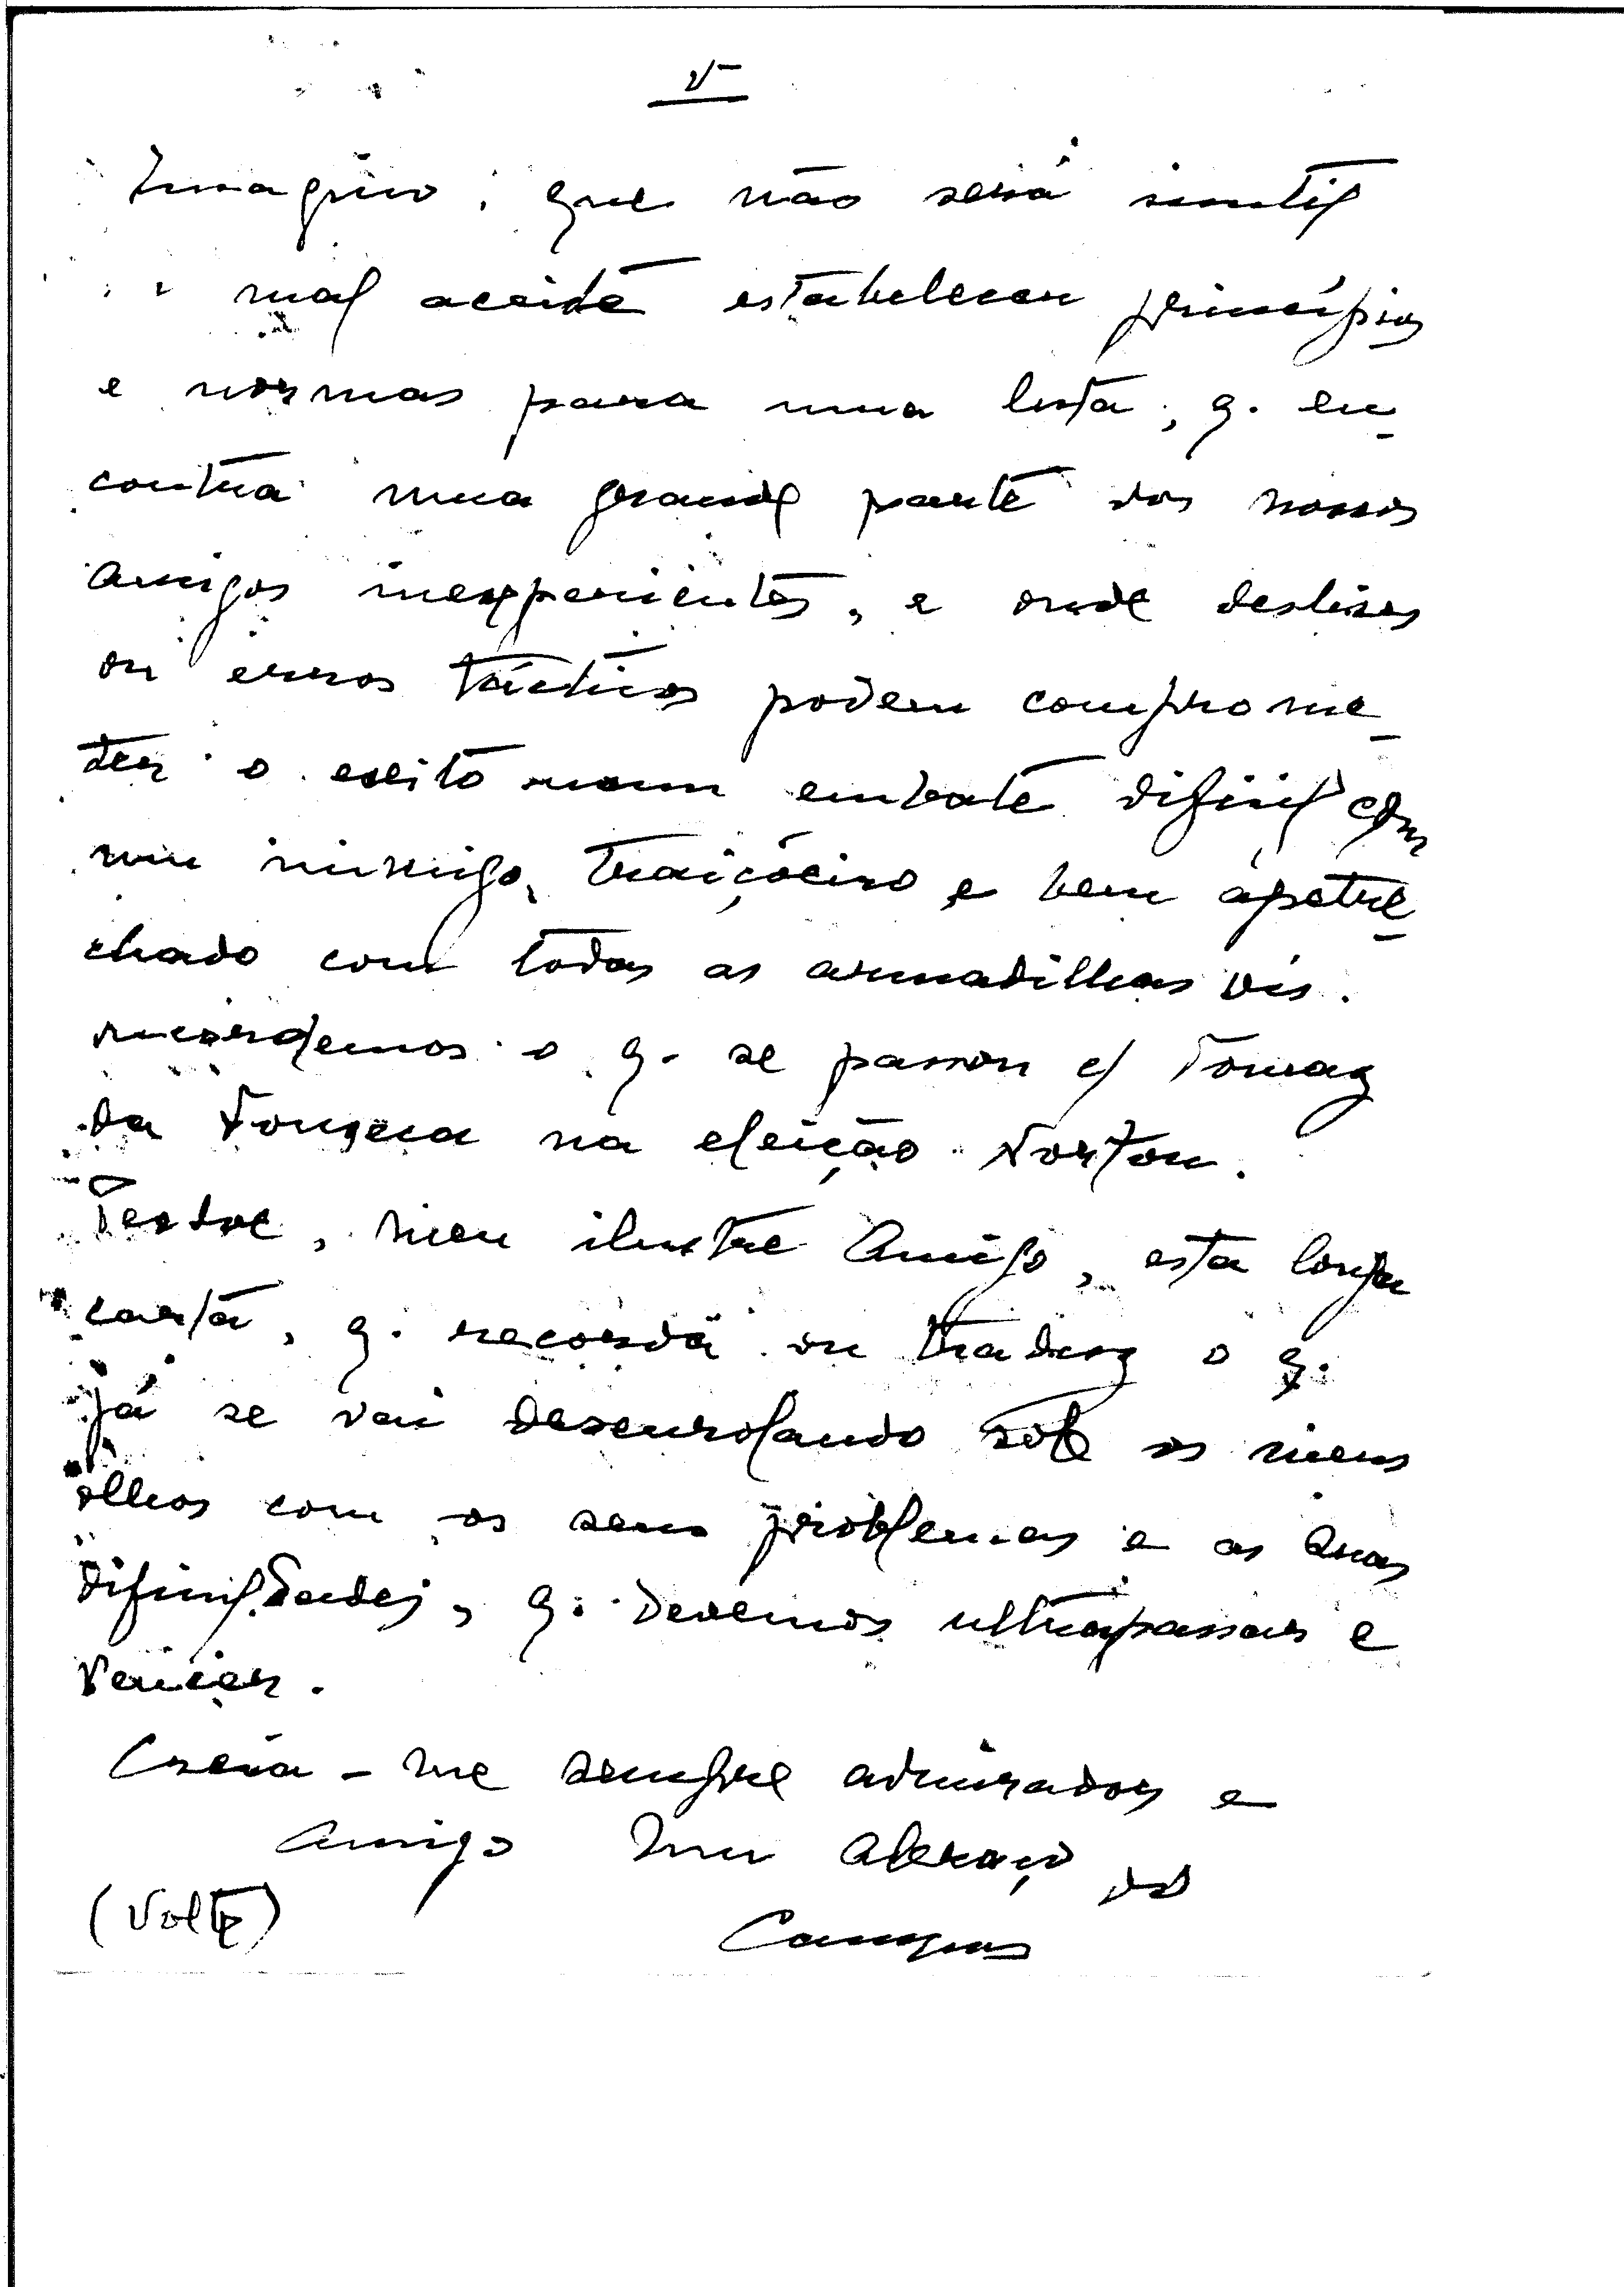 V
Imagino, que não será inutil
mal aceite estabelecer princípios
e normas para uma luta, q. en-
contra uma grande parte dos nossos
amigos inexperientes, e onde deslises
ou erros tácticos podem comprome-
ter o exito num embate dificil com
um inimigo, traiçoeiro e bem apetre-
chado com todas as armadilhas vis.
recordemos o q. se passou c/ Tomaz
da Fonseca na eleição Norton.
Perdoe, meu ilustre Amigo, esta longa
carta, q. recorda ou traduz o q.
já se vai desenrolando sob os meus
olhos com os seus problemas e as suas
dificildades, q. devemos ultrapassar e
vencer.
Creia-me sempre admirador e
amigo Um abraço do
Campos
(Volte)